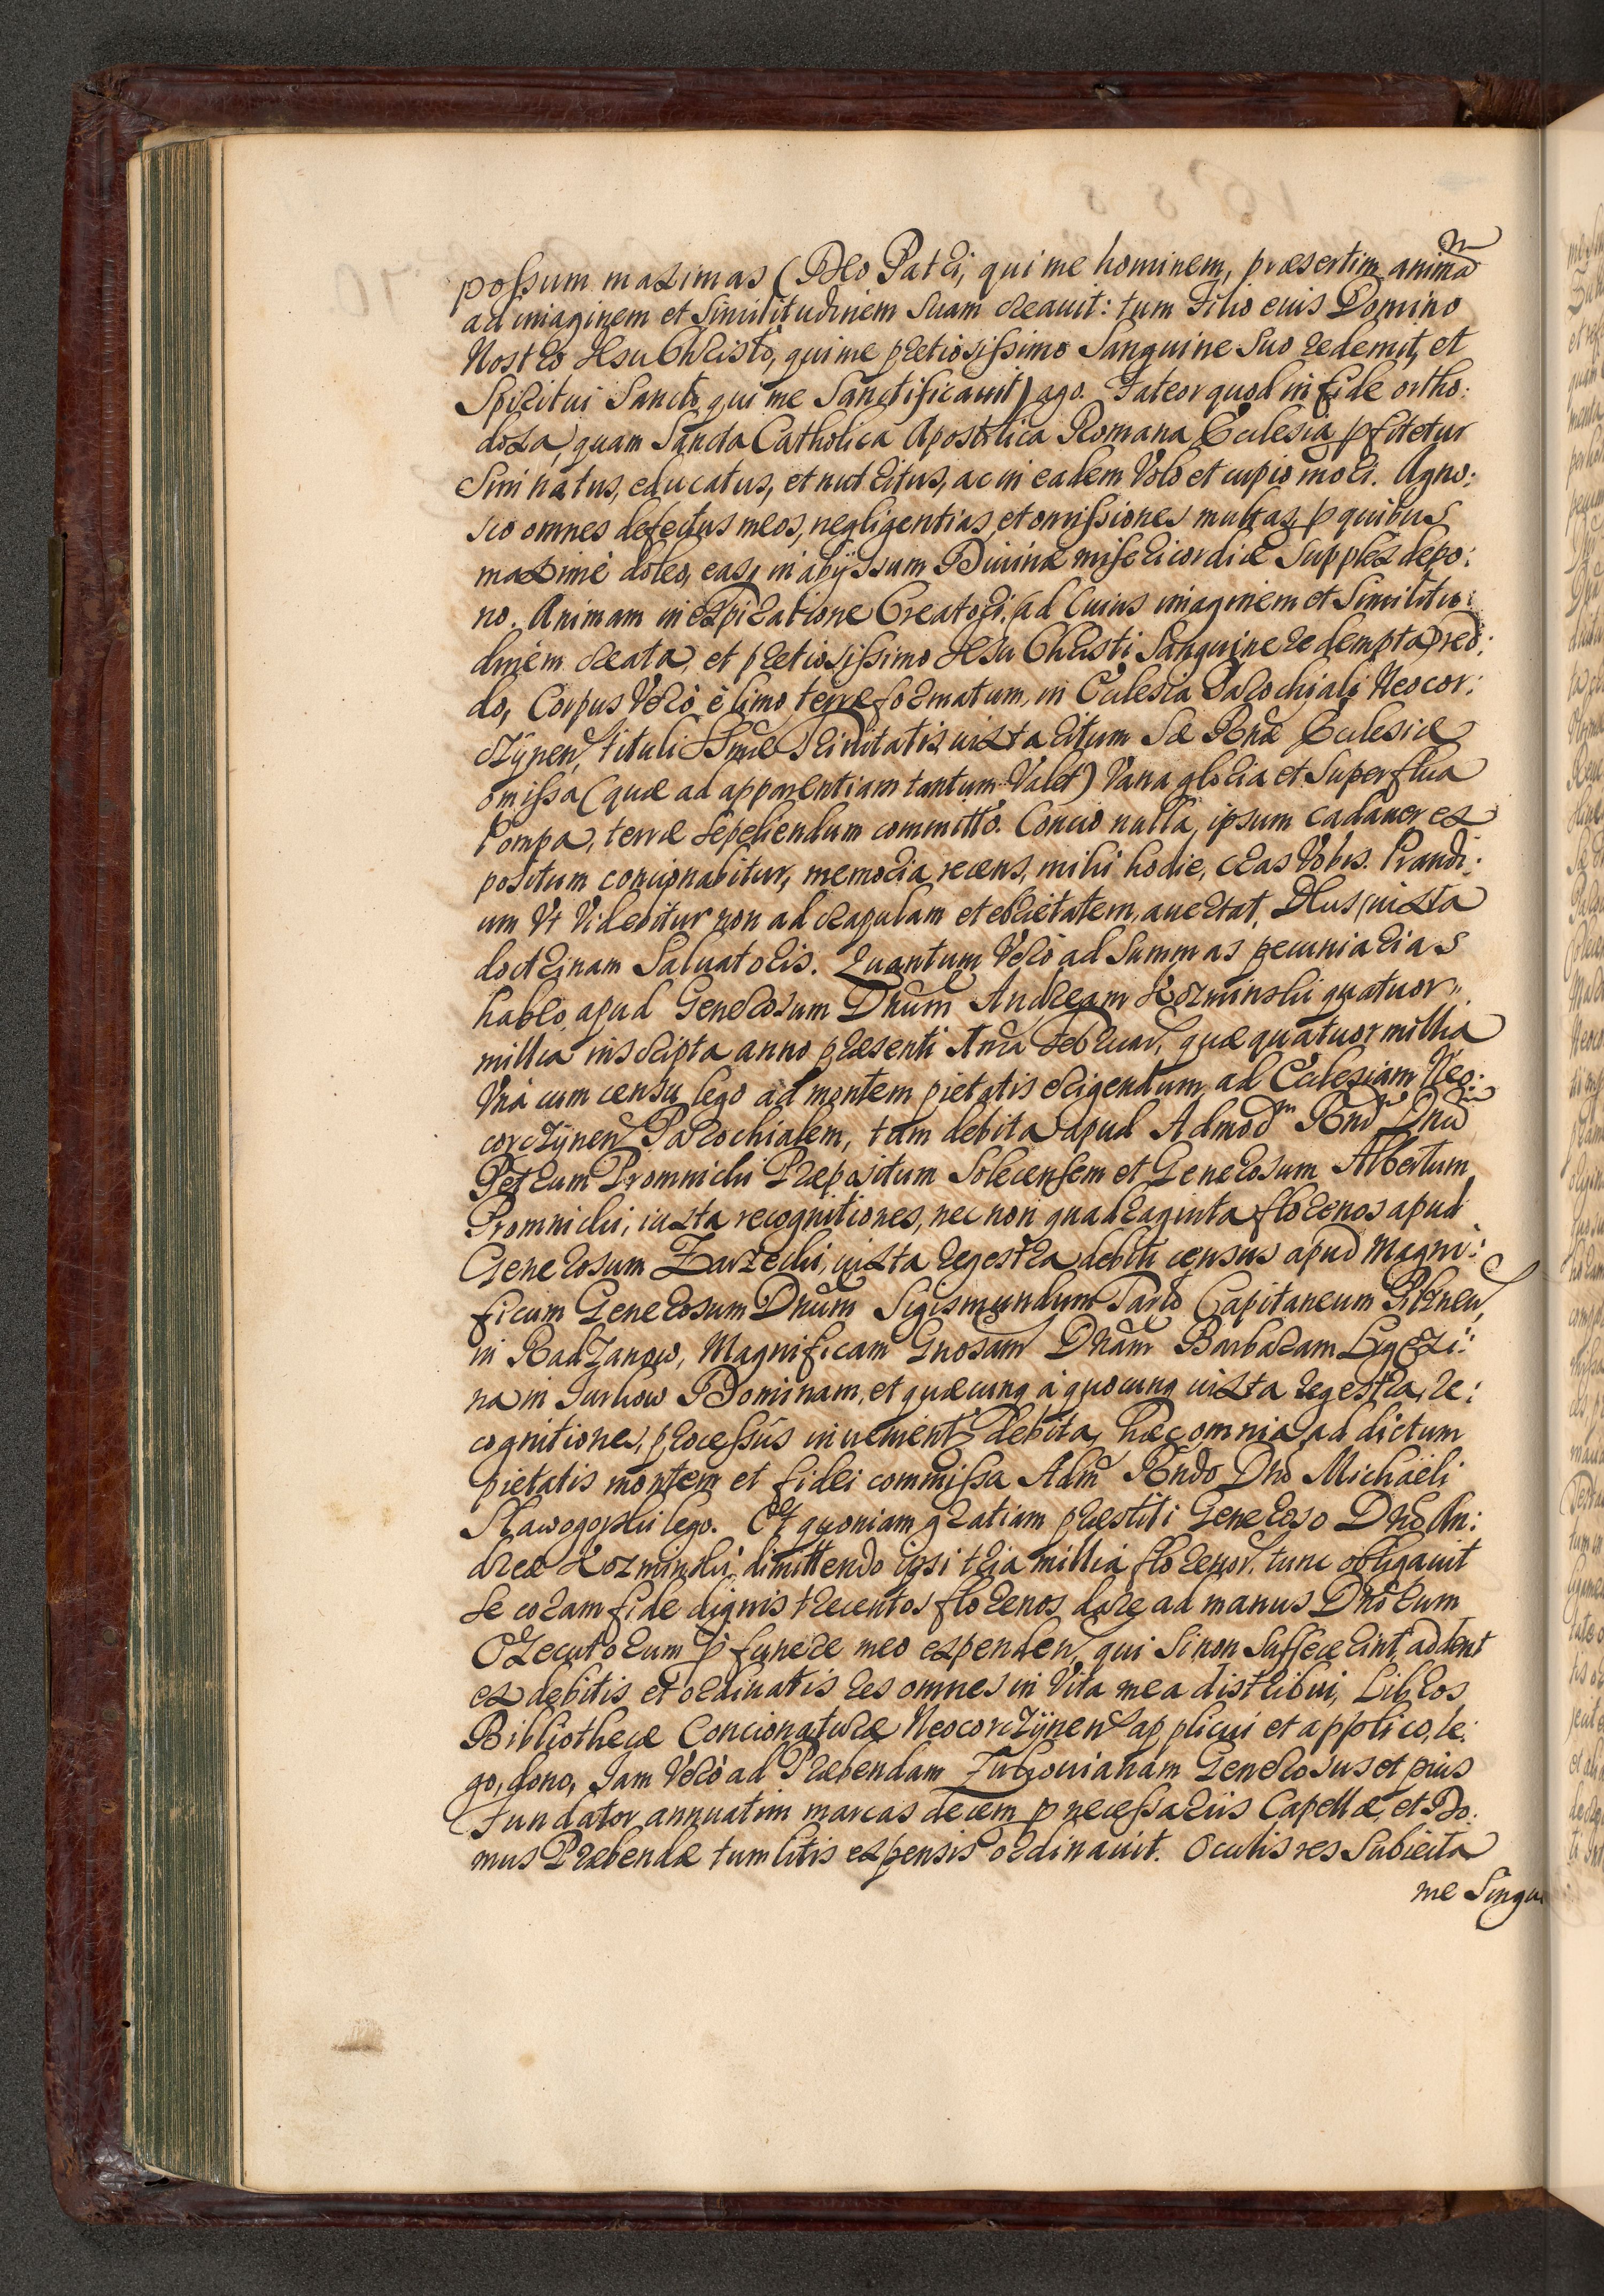 possum maximas (Deo Patri, qui me hominem, præsertim animã
ad imaginem et Similitudinem Suam creauit: tum Filio eius Domino
Nostro Jesu Christo, qui me pretiosissimo Sanguine Suo redemit, et
Spiritui Sancto qui me Sanctificauit) ago. Fateor quod in fide ortho:
doxa, quam Sancta Catholica Apostolica Romana Ecclesia pfitetur
Sim natus, educatus, et nutritus, ac in eadem Volo et cupio mori. Agno:
sco omnes defectus meos, negligentias, et omissiones multas, p quibus
maximè doleo, easq in abyssum Diuinæ misericordiæ Supplex depo:
no. Animam in expiratione Creatori (ad Cuius imaginem et Similitu:
dinem creata, et pretiosissimo Jesu Christi Sanguine redempta) red:
do, Corpus Verò è limo terræ formatum, in Ecclesia Parochiali Neocor:
czynen, tituli SSmæ Trinitatis, iuxta ritum Sæ Rnæ Ecclesiæ
omissa (quæ ad apparentiam tantum Valet) Vana gloria et Superflua
Pompa, terræ Sepeliendum committo. Concio nulla, ipsum cadauer ex
positum concionabitur, memoria recens, mihi hodie, cras Vobis. Prandi:
um Vt Videbitur non ad crapulam et ebrietatem, auertat Deus, iuxta
doctrinam Saluatoris. Quantum Verò ad Summas pecuniarias
habeo apud Generosum Dnum Andream Kozminski quatuor
millia inscripta anno præsenti Februar, quæ quatuor millia
Vnà cum censu lego ad montem pietatis erigendum, ad Ecclesiam Neo:
corczynen Parochialem, tum debita apud Admod Rnd Dnũ
Petrum Promnicki Præpositum Solecensem et Generosum Albertum
Promnicki, iuxta recognitiones, nec non quadraginta florenos apud
Generosum Zarzecki, iuxta regestra debiti census apud Magni:
ficum Generosum Dnum Sigismundum Tarlo Capitaneum Pilznen,
in Radzanow, Magnificam Gnosam Dnam Barbaram Ligezi:
na in Jurkow Dominam, et quæcunq à quocunq iuxta regestra, re:
cognitiones, processus inuenientr debita, hæc omnia ad dictum
pietatis montem et fidei commissa Adm Rndo Dno Michaeli
Slawogorski lego. Et quoniam gratiam præstiti Generoso Dno An:
dreæ Kozminski, dimittendo ipsi tria millia florenor, tunc obligauit
Se coram fide dignis trecentos florenos dare ad manus Dnorum
Execut orum p funere meo expenden, qui Si non Suffecerint, addent
ex debitis et ordinatis res omnes in Vita mea distribui, Libros
Bibliothecæ Concionaturæ Neocorczynen applicui et applico, le:
go, dono, Jam Verò ad Præbendam Zukouianam Generosus et pius
Fundator annuatim marcas decem p necessariis Capellæ et Do:
mus Præbendæ tum litis expensis ordinauit. Oculis res Subiecta
me Singu